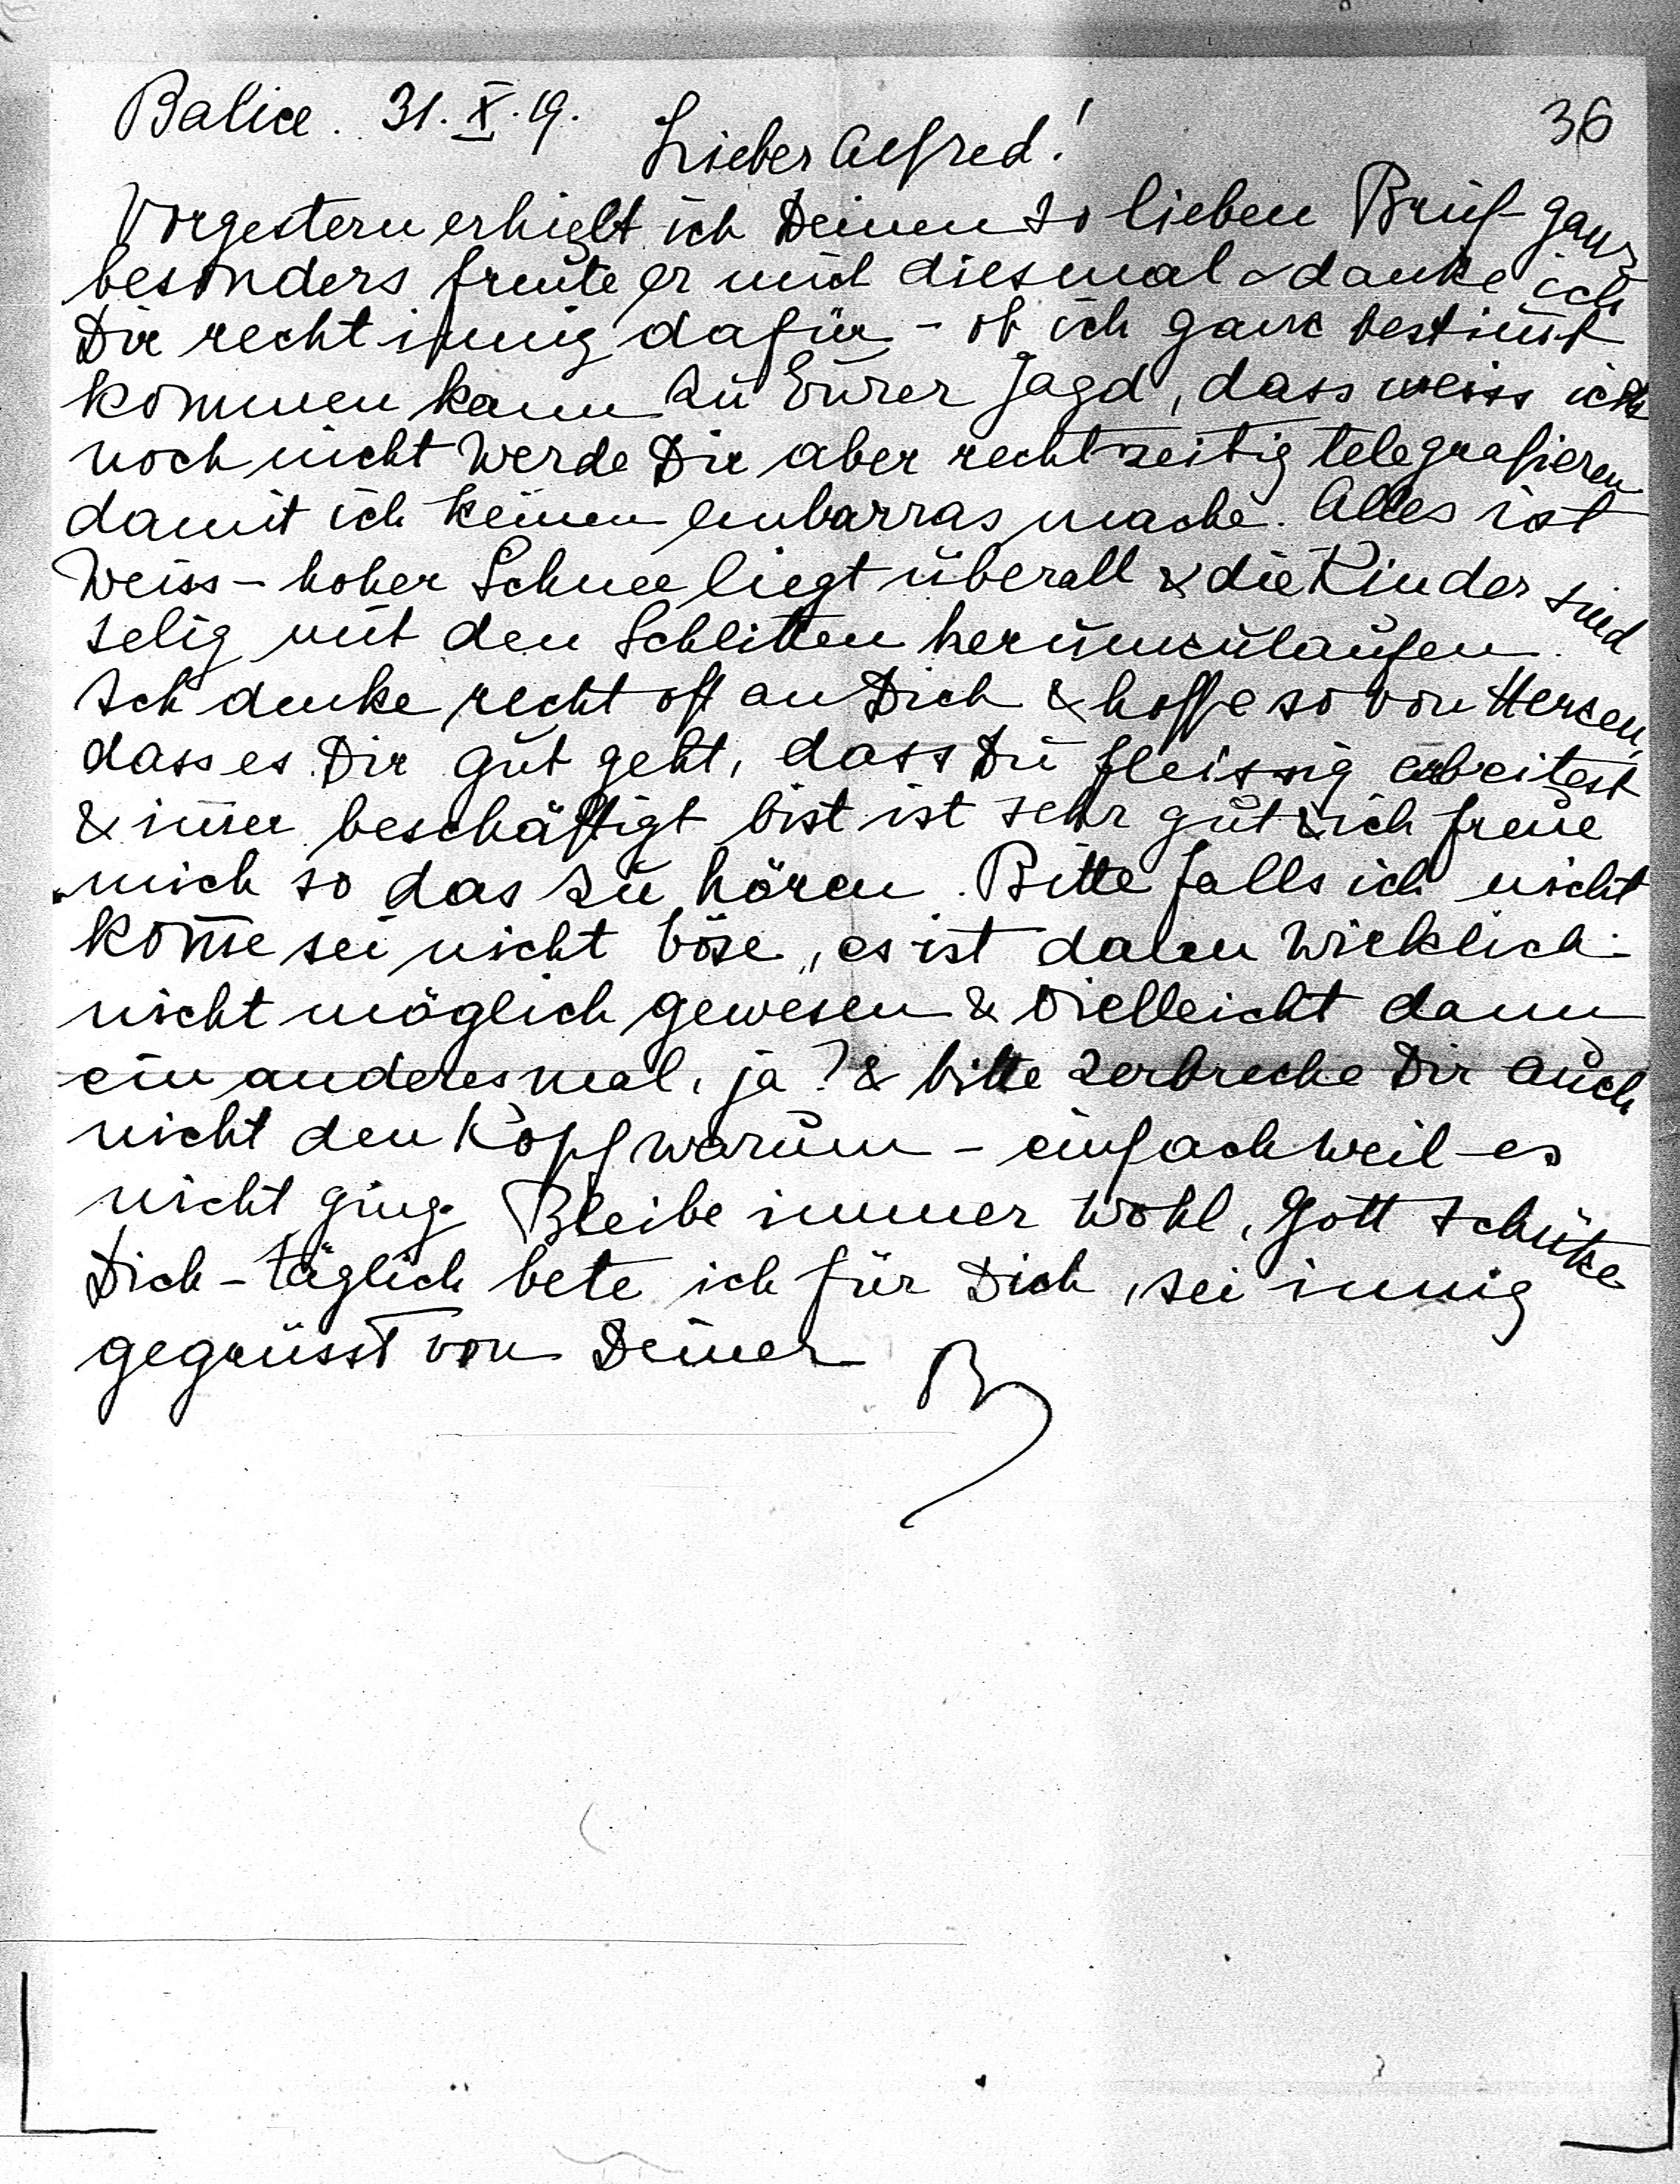 Balice. 31. X. 19.
36
Lieber Alfred!
Vorgestern erhielt ich Deinen so lieben Brief ganz
besonders freute er mich diesmal & danke ich
Dir recht innig dafür - ob ich ganz bestim̅t
kommen kann zu Eurer Jagd, dass weiss ich
noch nicht werde Dir aber rechtzeitig telegrafieren
damit ich keinen embarras mache. Alles ist
Weiss - hoher Schnee liegt überall & die Kinder sind
selig mit den Schlitten herumzulaufen.
Ich denke recht oft an Dich & hoffe so von Herzen,
dass es Dir gut geht, dass Du fleissig arbeitest
& im̅er beschäftigt bist ist sehr gut & ich freue
mich so das zu hören. Bitte falls ich nicht
kom̅e sei nicht böse, es ist dann wirklich
nicht möglich gewesen & vielleicht dann
ein anderesmal, ja? & bitte zerbreche Dir auch
nicht den Kopf warum - einfach weil es
nicht ging. Bleibe immer wohl, Gott schütze
Dich - täglich bete ich für Dich, sei innig
gegrüsst von Deiner B